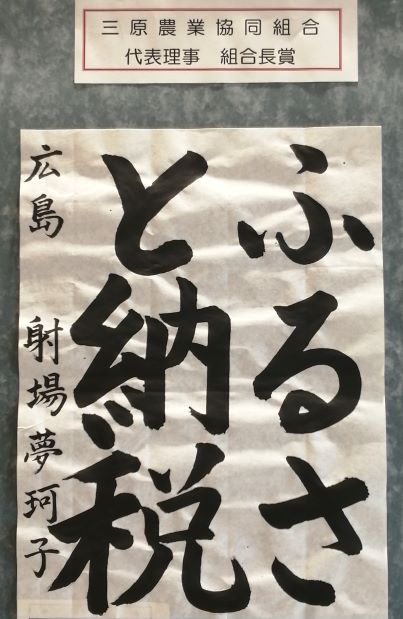 三原農業協同組合
代表理事 組合長賞
ふるさ
と納税
広島 射場夢珂子